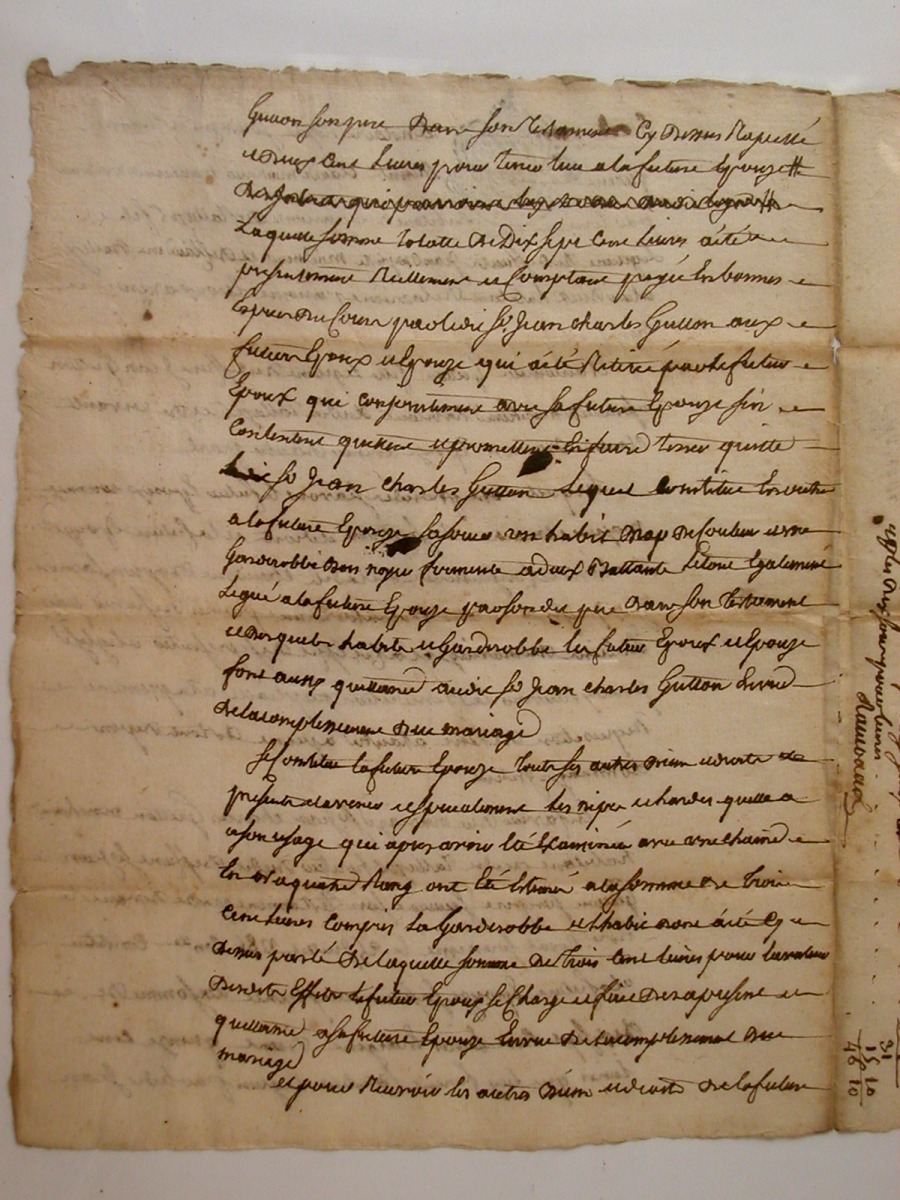 Gutton son pere dans son testament cy dessus Rapellé
et deux cent Livres pour tenir lieu a la future Epouze
Laquelle somme totalle de Dix sept cent Livres a été
presentement Reellement et Comptant payée En bonnes
Especes du Cours par ledit Sr Jean Charles Gutton aux
futurs Epoux et Epouze qui a été Retirée par le futur
Epoux qui conjointement avec sa future Epouze s'en
Contentent quittent et promettent En faire tenir quitte
ledit Sr Jean Charles Gutton Lequel Constitue En outre
a la future Epouze sa soeur un habit drap de Couleur et une
Garderobbe bois noyer fermente a deux Battants Le tout Egalement
Legué a la future Epouze par son dit pere dans son testament
et desquels habits et Garderobbe les futurs Epoux et Epouze
font aussy quittance audit Sr Jean Charles Gutton En vue
de lacomplissement du mariage
Se Constitue la future Epouze touts ses autres biens et droits
presents et avenir et specialement les nipes et hardes quelle a
a son usage qui apres avoir Eté Examinées avec une chaine
En or a quatre Rang ont Eté Estimés a la somme de trois
Cent Livres Compris la Garderobbe et lhabit dont a été cy
dessus parlé de laquelle somme de trois Cent Livres pour la valeur
desdits Effets le futur Epoux se Charge et fait des a present
quittance a sa future Epouze En vue de lacomplissement du
mariage
et pour Recevoir les autres biens et droits de la future
Rambaud
31
15 10
46 10